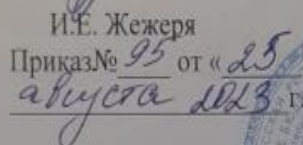 И.Е. Жежеря
Приказ№ 95 от « 25
августа 2023 г